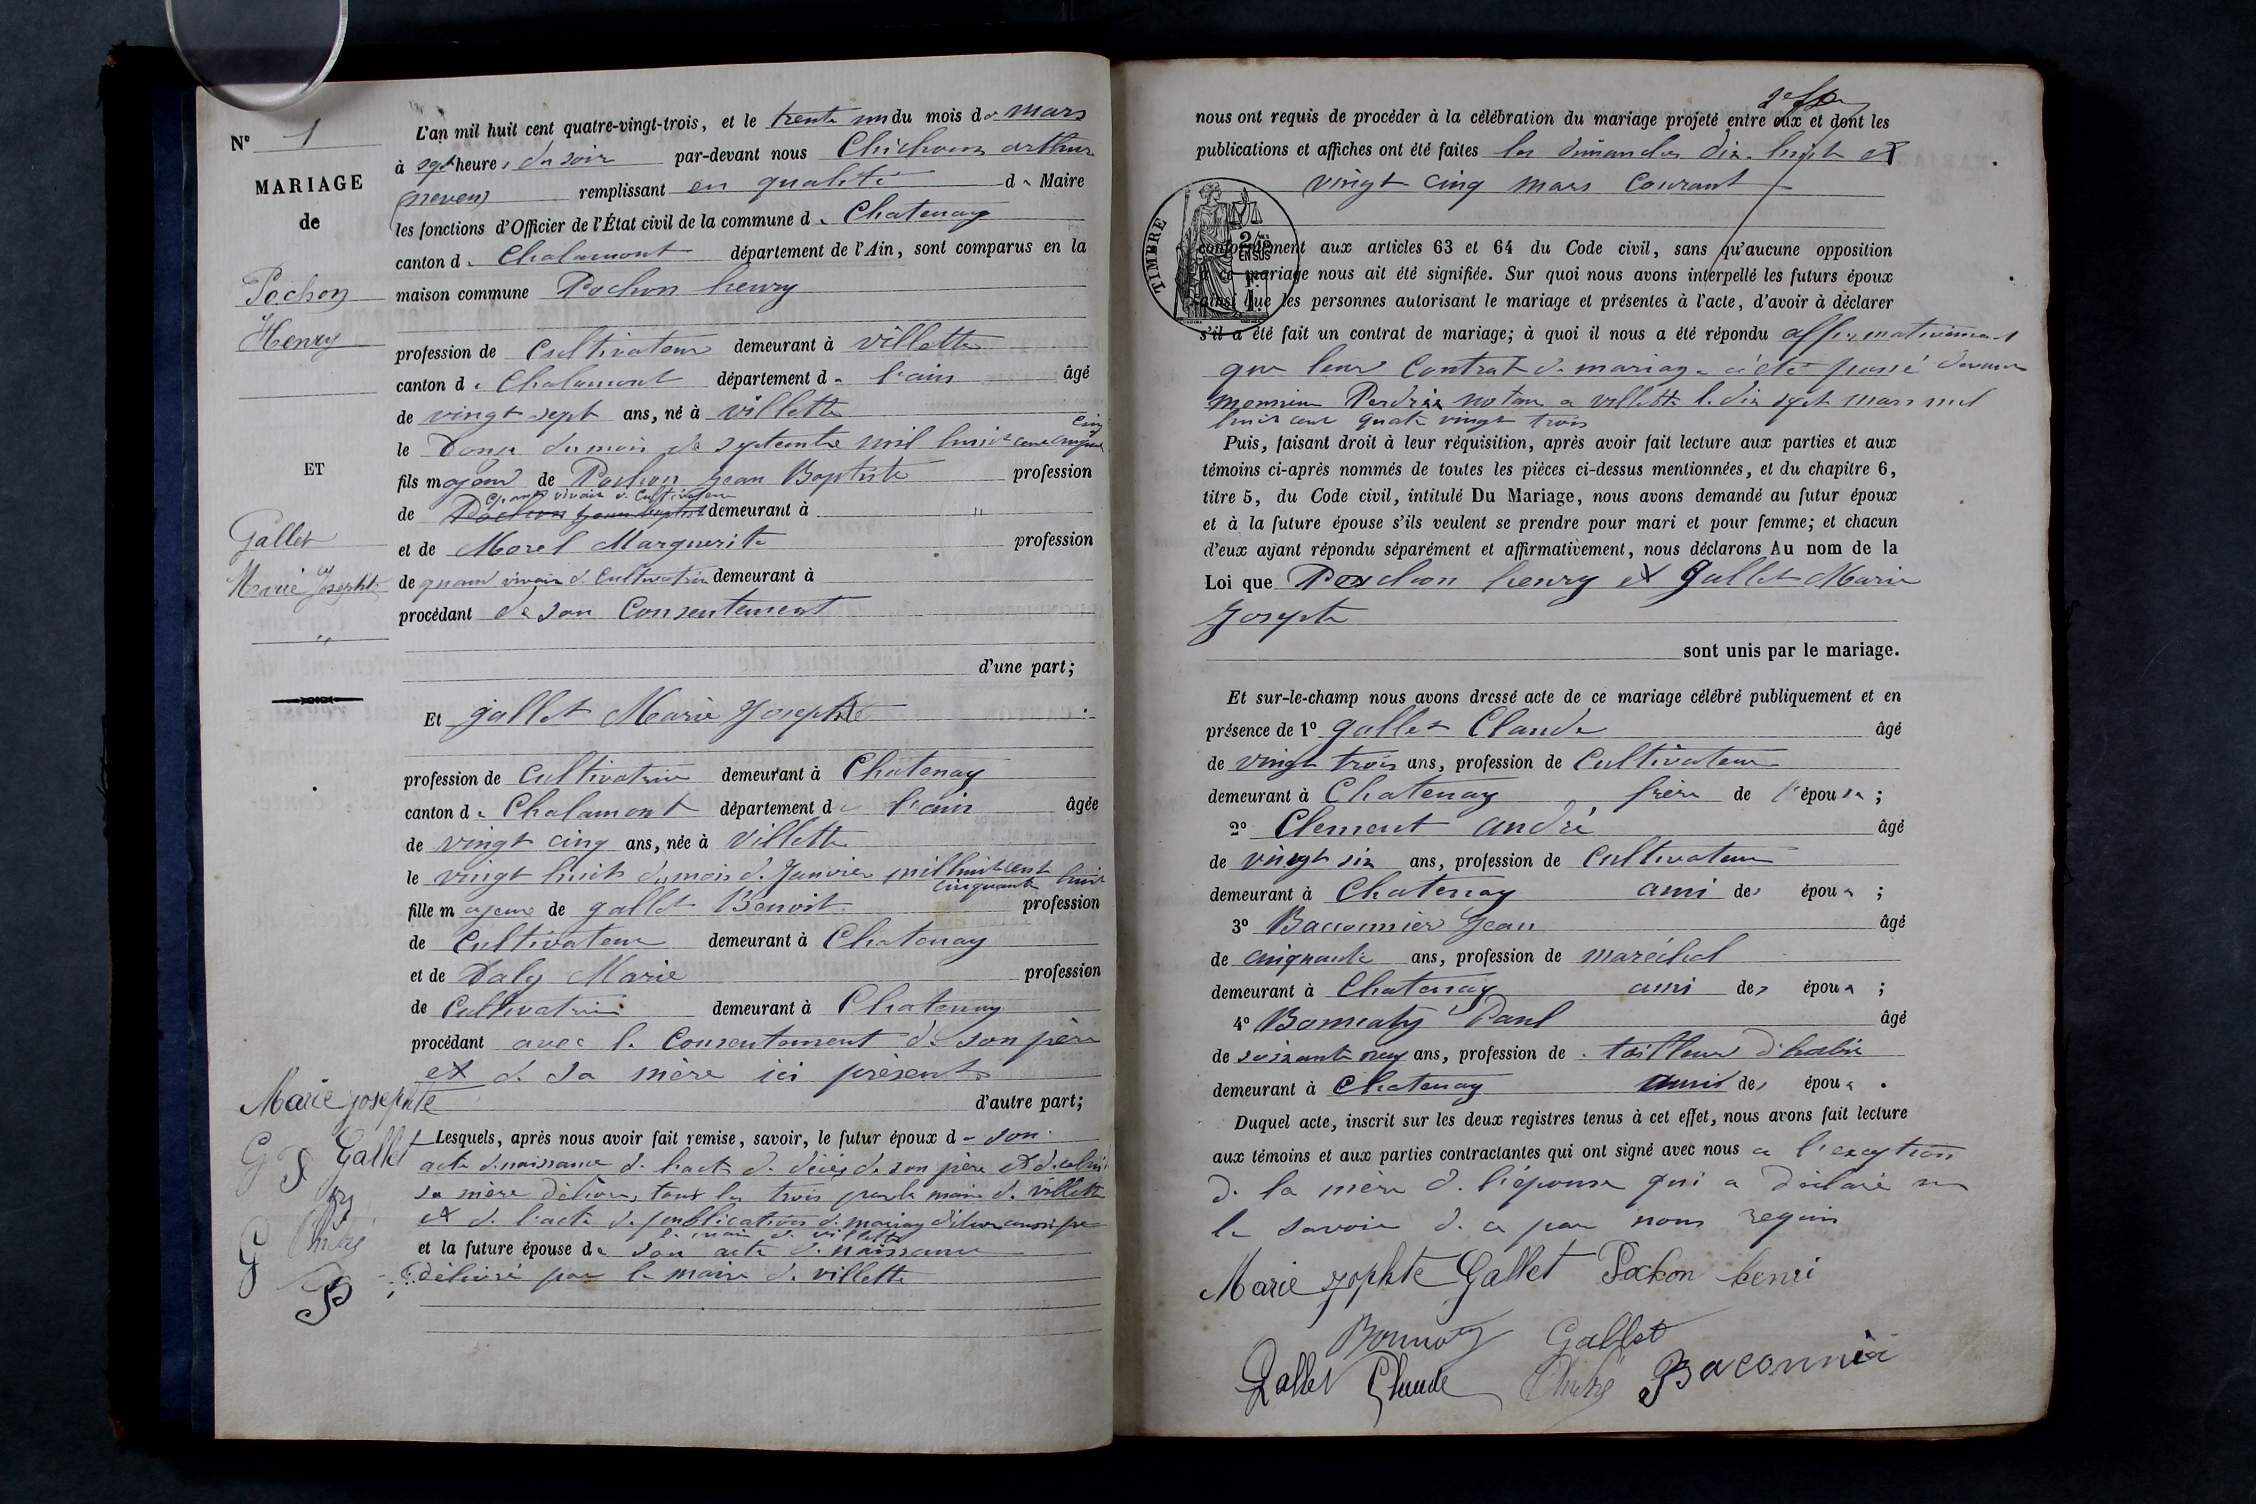 N° 1
MARIAGE
de
Pochon
Henry
ET
Gallet
Marie Josephte
L'an mil huit cent quatre-vingt-trois, et le trente un du mois de mars
à sept heures du soir par-devant nous Chichoux arthur
(neveu) remplissant en qualité de Maire
les fonctions d'Officier de l'État civil de la commune de Chatenay
canton de Chalamont département de l'Ain, sont comparus en la
maison commune Pochon henry
profession de Cultivateur demeurant à villette
canton de Chalamont département de l'ain âgé
de vingt sept ans, né à villette
le Douze du mois de septembre mil huit cent cinquante cinq
fils majeur de Pochon Jean Baptiste profession
quand vivait de Cultivateur
de Pochon Jean Baptiste demeurant à "
et de Morel Marguerite profession
de quand vivait de Cultivatrice demeurant à
procédant de son Consentement
d'une part;
Et gallet Marie Josephte
profession de Cultivatrice demeurant à Chatenay
canton de Chalamont département de l'ain âgée
de vingt cinq ans, née à Villette
le vingt huit du mois de Janvier mil huit cent cinquante huit
fille majeure de gallet Benoit profession
de Cultivateur demeurant à Chatenay
et de Daly Marie profession
de Cultivatrice demeurant à Chatenay
procédant avec le Consentement de son père
et de sa mère ici présents
d'autre part;
Marie josephte
Gallet
Lesquels, après nous avoir fait remise, savoir, le futur époux de son
acte de naissance de l'acte de décès de son père et de celui
sa mère délivrés tous les trois par le maire de villette
et de l'acte de publications de mariage délivré aussi par
le maire de villette
et la future épouse de son acte de naissance
délivré par le maire de villette
nous ont requis de procéder à la célébration du mariage projeté entre eux et dont les
publications et affiches ont été faites les dimanches dix-huit et
vingt cinq mars courant
TIMBRE
2/10 EN SUS
conformément aux articles 63 et 64 du Code civil, sans qu'aucune opposition
à ce mariage nous ait été signifiée. Sur quoi nous avons interpellé les futurs époux
ainsi que les personnes autorisant le mariage et présentes à l'acte, d'avoir à déclarer
s'il a été fait un contrat de mariage; à quoi il nous a été répondu affirmativement
que leur Contrat de mariage a été passé devant
monsieur Perdrix notaire a villette le dix sept mars mil
huit cent quatre vingt trois
Puis, faisant droit à leur réquisition, après avoir fait lecture aux parties et aux
témoins ci-après nommés de toutes les pièces ci-dessus mentionnées, et du chapitre 6,
titre 5, du Code civil, intitulé Du Mariage, nous avons demandé au futur époux
et à la future épouse s'ils veulent se prendre pour mari et pour femme; et chacun
d'eux ayant répondu séparément et affirmativement, nous déclarons Au nom de la
Loi que Pochon henry et Gallet Marie
Josephte
sont unis par le mariage.
Et sur-le-champ nous avons dressé acte de ce mariage célébré publiquement et en
présence de 1° gallet Claude âgé
de vingt trois ans, profession de Cultivateur
demeurant à Chatenay frère de l'épouse;
2° Clement andré âgé
de vingt six ans, profession de Cultivateur
demeurant à Chatenay ami des époux;
3° Baconnier Jean âgé
de cinquante ans, profession de maréchal
demeurant à Chatenay ami des époux;
4° Paul âgé
de soixante ans, profession de tailleur d'habits
demeurant à Chatenay ami des époux.
Duquel acte, inscrit sur les deux registres tenus à cet effet, nous avons fait lecture
aux témoins et aux parties contractantes qui ont signé avec nous a l'exception
de la mère de l'épouse qui a déclaré ne
le savoir de ce par nous requis
Marie josphte Gallet Pochon henri
Gallet
Gallet Claude Baconnier